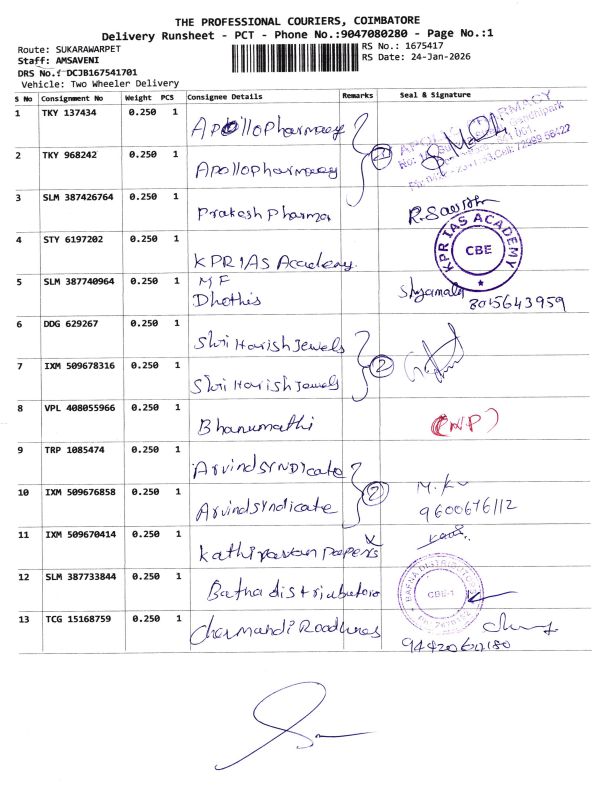 THE PROFESSIONAL COURIERS, COIMBATORE
Delivery Runsheet - PCT - Phone No.:9047080280 - Page No.:1
Route: SUKARAWARPET
RS No.: 1675417
Staff: AMSAVENI
RS Date: 24-Jan-2026
DRS No.: DCJB167541701
Vehicle: Two Wheeler Delivery
S No Consignment No Weight PCS Consignee Details Remarks Seal & Signature
1 TKY 137434 0.250 1 Apollopharmacy
2 TKY 968242 0.250 1 Apollopharmacy 2
3 SLM 387426764 0.250 1 Prakash Pharma
4 STY 6197202 0.250 1 KPR IAS Academy KPR IAS ACADEMY CBE
5 SLM 387740964 0.250 1 MF Dhothis Shyamala 8015643959
6 DDG 629267 0.250 1 Shri Harish Jewels
7 IXM 509678316 0.250 1 Shri Harish Jewels 2
8 VPL 408055966 0.250 1 Bhanumathi (N.P)
9 TRP 1085474 0.250 1 Arvind SYNDicate
10 IXM 509676858 0.250 1 Arvind syndicate 2 9600676112
11 IXM 509670414 0.250 1 Kathiravan papers
12 SLM 387733844 0.250 1 Bafna distributors BAFNA DISTRIBUTORS CBE-1
13 TCG 15168759 0.250 1 Roadlines